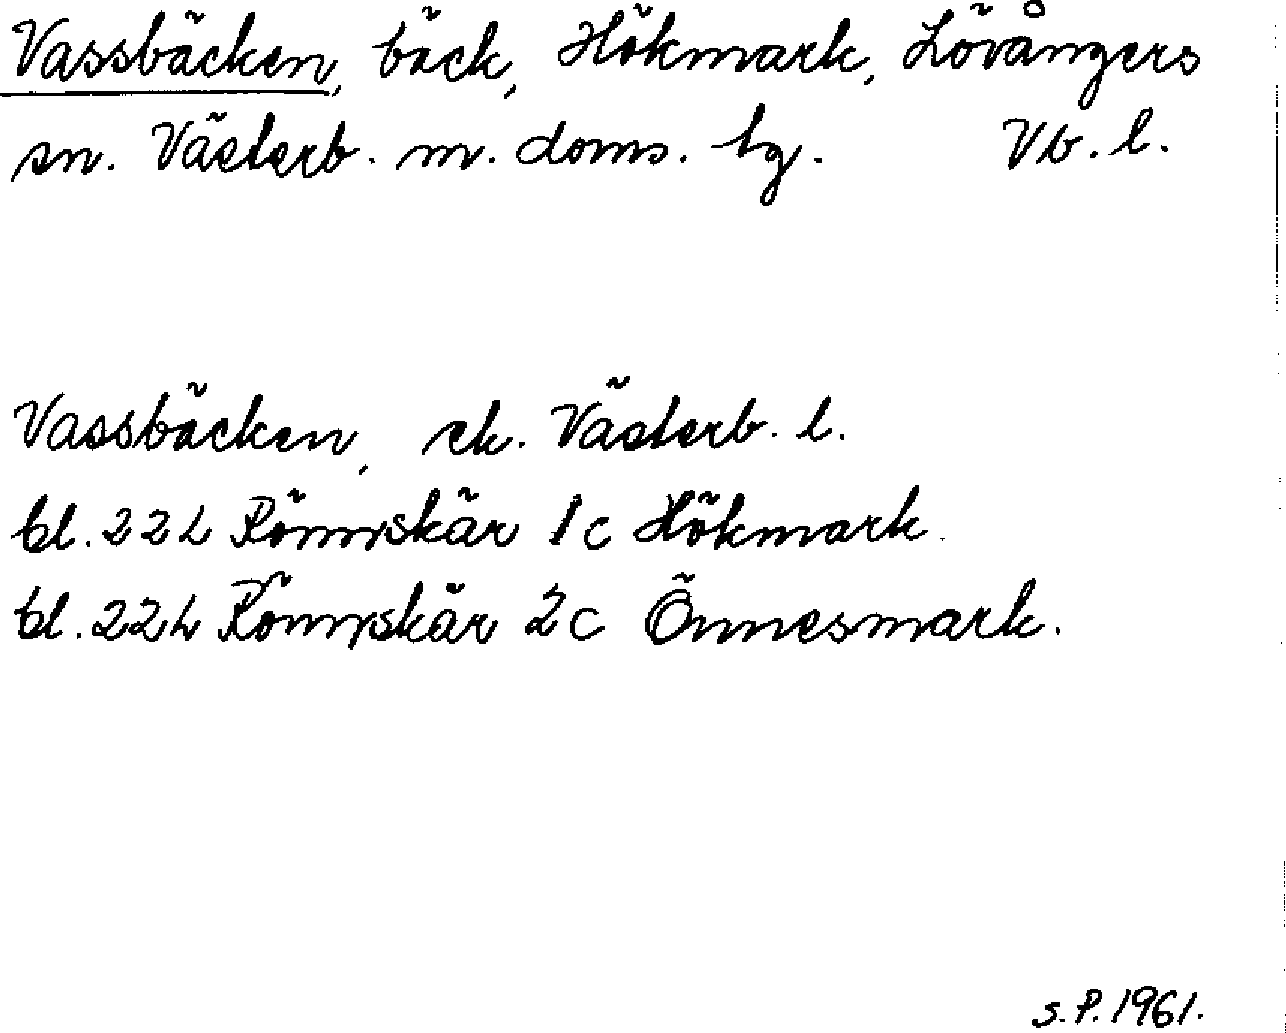 Vassbäcken, bäck, Hökmark, Lövångers
sn. Västerb. m. doms. tg. Vb. l.
Vassbäcken, ek. Västerb. l.
bl. 22L Rönnskär 1c Hökmark.
bl. 22L Rönnskär 2c Önnesmark.
S.P. 1961.